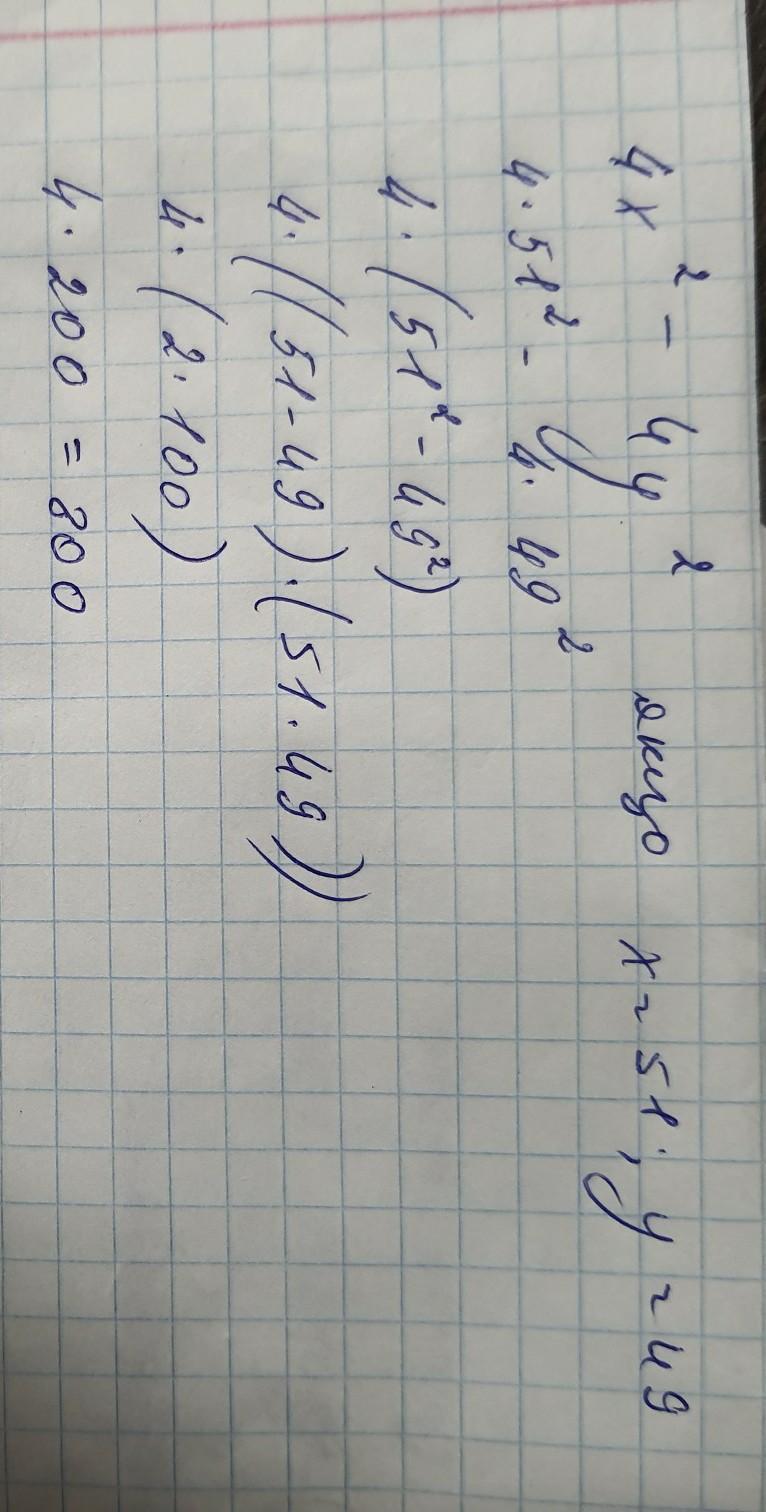 4x² - 4y² якщо x = 51; y = 49
4·51² - 4·49²
4·(51² - 49²)
4·((51-49)·(51·49))
4·(2·100)
4·200 = 800